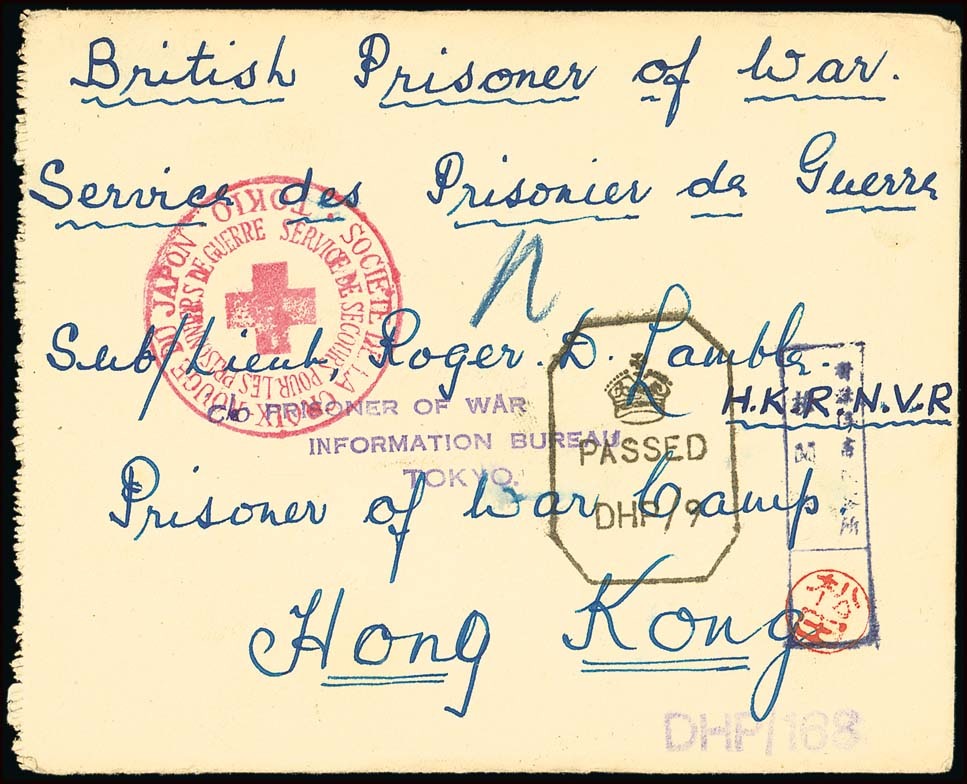 British Prisoner of War.
Service des Prisonier de Guerre
SOCIÉTÉ DE LA CROIX ROUGE DU JAPON · TOKIO ·
SERVICE DE SECOURS POUR LES PRISONNIERS DE GUERRE
Sub/Lieut, Roger. D. Lamble.
H.K.R.N.V.R
c/o PRISONER OF WAR
INFORMATION BUREAU
TOKYO.
PASSED
DHP/9
Prisoner of War Camp.
Hong Kong
DHP/168